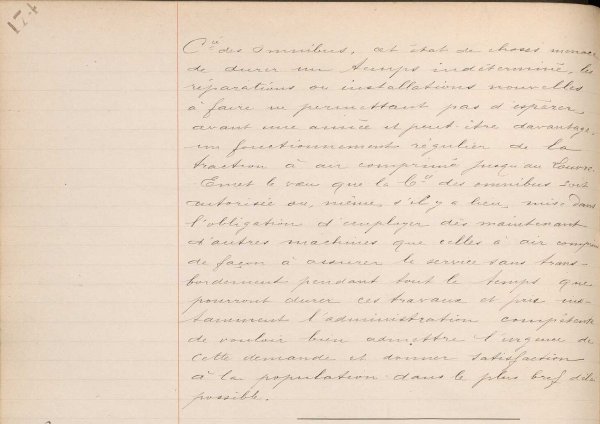 174
Cie des Omnibus, cet état de choses menace
de durer un temps indéterminé, les
réparations ou installations nouvelles
à faire ne permettant pas d'espérer
avant une année et peut-être davantage,
un fonctionnement régulier de la
traction à air comprimé jusqu'au Louvre.
Emet le vœu que la Cie des omnibus soit
autorisée ou, même, s'il y a lieu, mise dans
l'obligation d'employer dès maintenant
d'autres machines que celles à air comprimé
de façon à assurer le service sans trans-
bordement pendant tout le temps que
pourront durer ces travaux et prie ins-
tamment l'administration compétente
de vouloir bien admettre l'urgence de
cette demande et donner satisfaction
à la population dans le plus bref délai
possible.